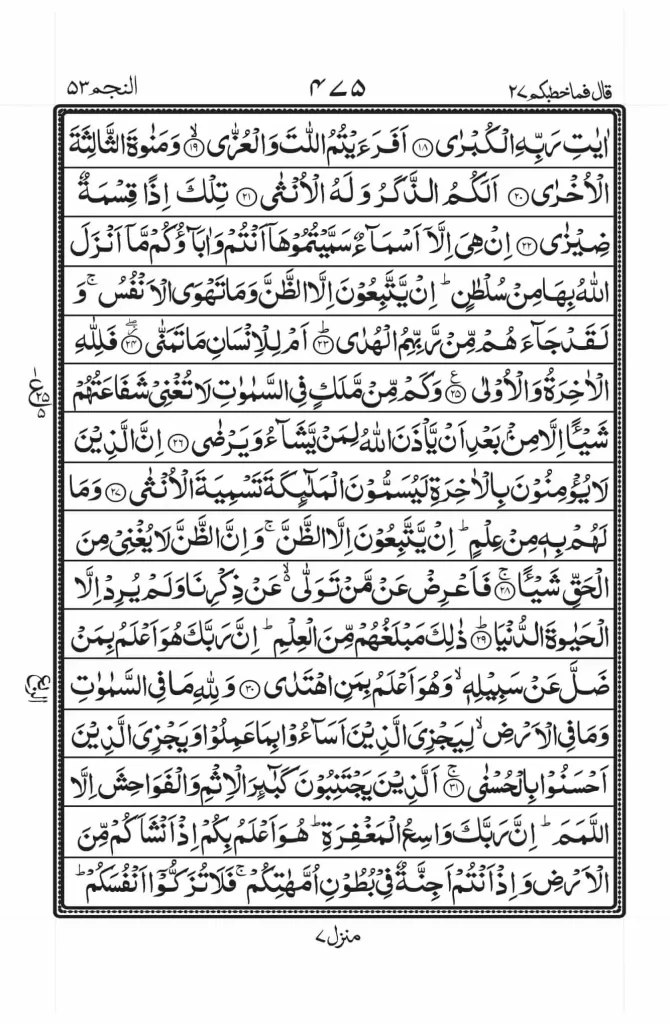 قال فماخطبکم ۲۷
۴۷۵
النجم ۵۳
اٰیٰتِ رَبِّهِ الْكُبْرٰى ۱۸ اَفَرَءَیْتُمُ اللّٰتَ وَالْعُزّٰى ۙ ۱۹ وَمَنٰوةَ الثَّالِثَةَ
الْاُخْرٰى ۲۰ اَلَكُمُ الذَّكَرُ وَلَهُ الْاُنْثٰى ۲۱ تِلْكَ اِذًا قِسْمَةٌ
ضِیْزٰى ۲۲ اِنْ هِیَ اِلَّاۤ اَسْمَآءٌ سَمَّیْتُمُوْهَاۤ اَنْتُمْ وَاٰبَآؤُكُمْ مَّاۤ اَنْزَلَ
اللّٰهُ بِهَا مِنْ سُلْطٰنٍ ؕ اِنْ یَّتَّبِعُوْنَ اِلَّا الظَّنَّ وَمَا تَهْوَى الْاَنْفُسُ ۚ وَ
لَقَدْ جَآءَهُمْ مِّنْ رَّبِّهِمُ الْهُدٰى ؕ ۲۳ اَمْ لِلْاِنْسَانِ مَا تَمَنّٰى ۖ ۲۴ فَلِلّٰهِ
الْاٰخِرَةُ وَالْاُوْلٰى ۲۵ ع وَكَمْ مِّنْ مَّلَكٍ فِی السَّمٰوٰتِ لَا تُغْنِیْ شَفَاعَتُهُمْ
شَیْـًٔا اِلَّا مِنْۢ بَعْدِ اَنْ یَّاْذَنَ اللّٰهُ لِمَنْ یَّشَآءُ وَیَرْضٰى ۲۶ اِنَّ الَّذِیْنَ
لَا یُؤْمِنُوْنَ بِالْاٰخِرَةِ لَیُسَمُّوْنَ الْمَلٰٓىِٕكَةَ تَسْمِیَةَ الْاُنْثٰى ۲۷ وَمَا
لَهُمْ بِهٖ مِنْ عِلْمٍ ؕ اِنْ یَّتَّبِعُوْنَ اِلَّا الظَّنَّ ۚ وَاِنَّ الظَّنَّ لَا یُغْنِیْ مِنَ
الْحَقِّ شَیْـًٔا ۚ ۲۸ فَاَعْرِضْ عَنْ مَّنْ تَوَلّٰى ۙ۬ عَنْ ذِكْرِنَا وَلَمْ یُرِدْ اِلَّا
الْحَیٰوةَ الدُّنْیَا ؕ ۲۹ ذٰلِكَ مَبْلَغُهُمْ مِّنَ الْعِلْمِ ؕ اِنَّ رَبَّكَ هُوَ اَعْلَمُ بِمَنْ
ضَلَّ عَنْ سَبِیْلِهٖ ۙ وَهُوَ اَعْلَمُ بِمَنِ اهْتَدٰى ۳۰ وَلِلّٰهِ مَا فِی السَّمٰوٰتِ
وَمَا فِی الْاَرْضِ ۙ لِیَجْزِیَ الَّذِیْنَ اَسَآءُوْا بِمَا عَمِلُوْا وَیَجْزِیَ الَّذِیْنَ
اَحْسَنُوْا بِالْحُسْنٰى ۚ ۳۱ اَلَّذِیْنَ یَجْتَنِبُوْنَ كَبٰٓىِٕرَ الْاِثْمِ وَالْفَوَاحِشَ اِلَّا
اللَّمَمَ ؕ اِنَّ رَبَّكَ وَاسِعُ الْمَغْفِرَةِ ؕ هُوَ اَعْلَمُ بِكُمْ اِذْ اَنْشَاَكُمْ مِّنَ
الْاَرْضِ وَاِذْ اَنْتُمْ اَجِنَّةٌ فِیْ بُطُوْنِ اُمَّهٰتِكُمْ ۚ فَلَا تُزَكُّوْۤا اَنْفُسَكُمْ ؕ
منزل ۷